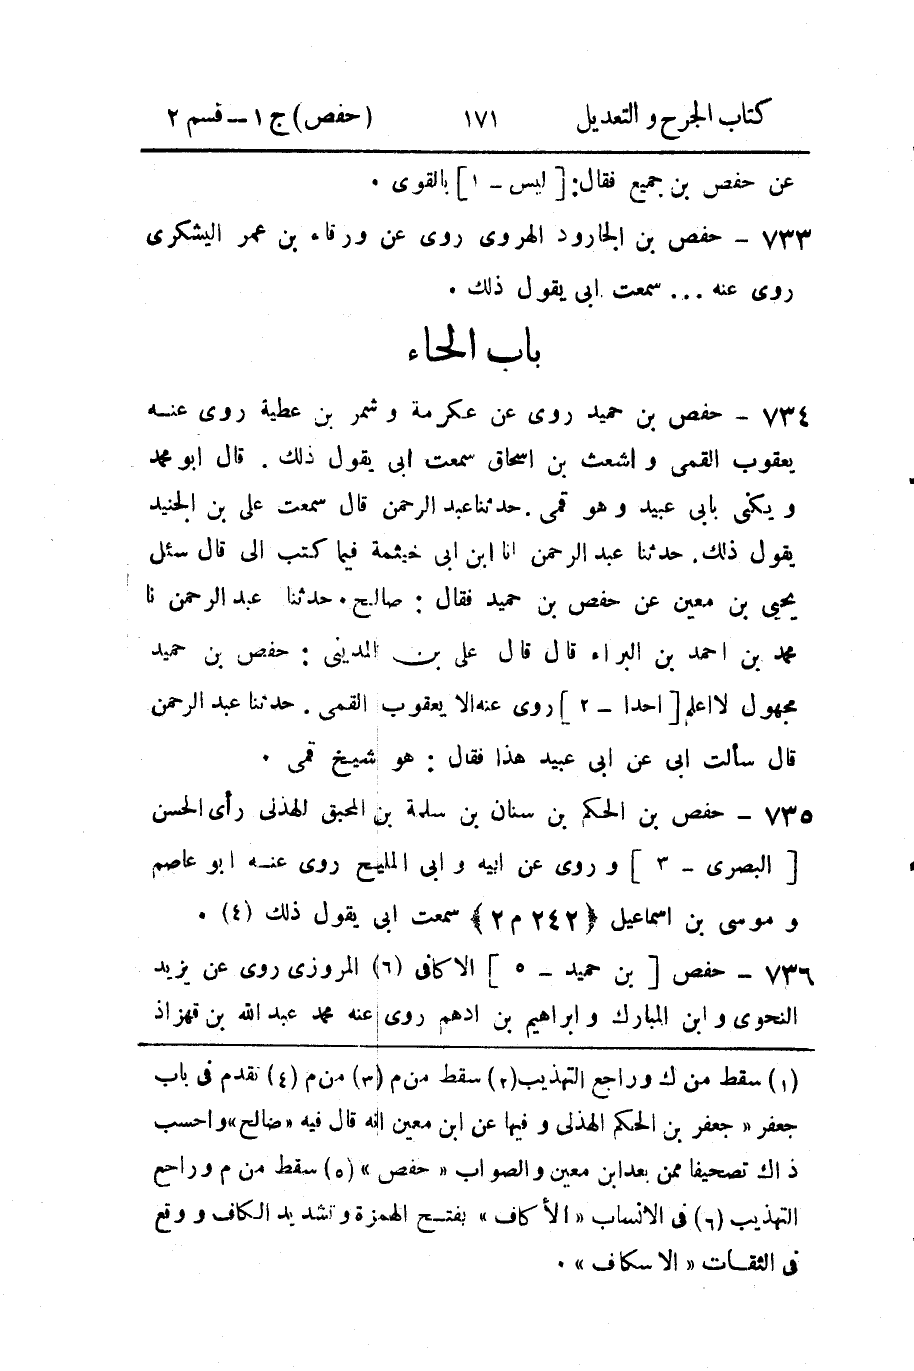 كتاب الجرح و التعديل ١٧١ (حفص) ج ١ – قسم ٢
عن حفص بن جميع فقال: [ ليس - ١ ] بالقوى .
٧٣٣ - حفص بن الجارود الهروى روى عن ورقاء بن عمر اليشكرى
روى عنه ... سمعت ابى يقول ذلك .
باب الحاء
٧٣٤ - حفص بن حميد روى عن عكرمة و شمر بن عطية روى عنه
يعقوب القمى و اشعث بن اسحاق سمعت ابى يقول ذلك . قال ابو محمد
و يكنى بابى عبيد و هو قمى . حدثنا عبد الرحمن قال سمعت على بن الجنيد
يقول ذلك . حدثنا عبد الرحمن انا ابن ابى خيثمة فيما كتب الى قال سئل
يحيى بن معين عن حفص بن حميد فقال : صالح . حدثنا عبد الرحمن نا
محمد بن احمد بن البراء قال قال على بن المدينى : حفص بن حميد
مجهول لا اعلم [ احدا - ٢ ] روى عنه الا يعقوب القمى . حدثنا عبد الرحمن
قال سألت ابى عن ابى عبيد هذا فقال : هو شيخ قمى .
٧٣٥ - حفص بن الحكم بن سنان بن سلمة بن المحبق الهذلى رأى الحسن
[ البصرى - ٣ ] و روى عن ابيه و ابى المليح روى عنه ابو عاصم
و موسى بن اسماعيل ﴿٢٤٢ م ٢﴾ سمعت ابى يقول ذلك (٤) .
٧٣٦ - حفص [ بن حميد - ٥ ] الاكافى (٦) المروزى روى عن يزيد
النحوى و ابن المبارك و ابراهيم بن ادهم روى عنه محمد عبد الله بن قهزاذ
(١) سقط من ك وراجع التهذيب (٢) سقط من م (٣) من م (٤) تقدم فى باب
جعفر « جعفر بن الحكم الهذلى و فيها عن ابن معين انه قال فيه « صالح » و احسب
ذاك تصحيفا ممن بعد ابن معين والصواب « حفص » (٥) سقط من م وراجع
التهذيب (٦) فى الانساب « الأكاف » بفتح الهمزة وتشديد الكاف و وقع
فى الثقات « الاسكاف » .